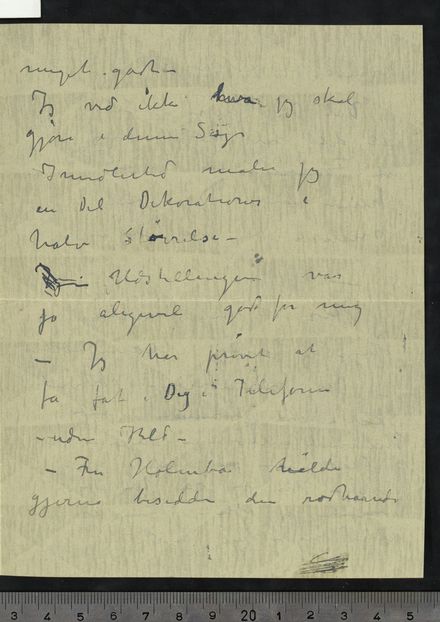 meget godt –
Jeg ved ikke hva jeg skal
gjøre i denne Sag
Imidlertid maler jeg
en Del Dekorationer i
halv Størrelse –
Udstillingen var
jo aligevel god for mig
– Jeg har prøvet at
få fat i Dig i Telefonen
– uden Held –
– Fru Holmboe
gjerne besidde den rødhaarede